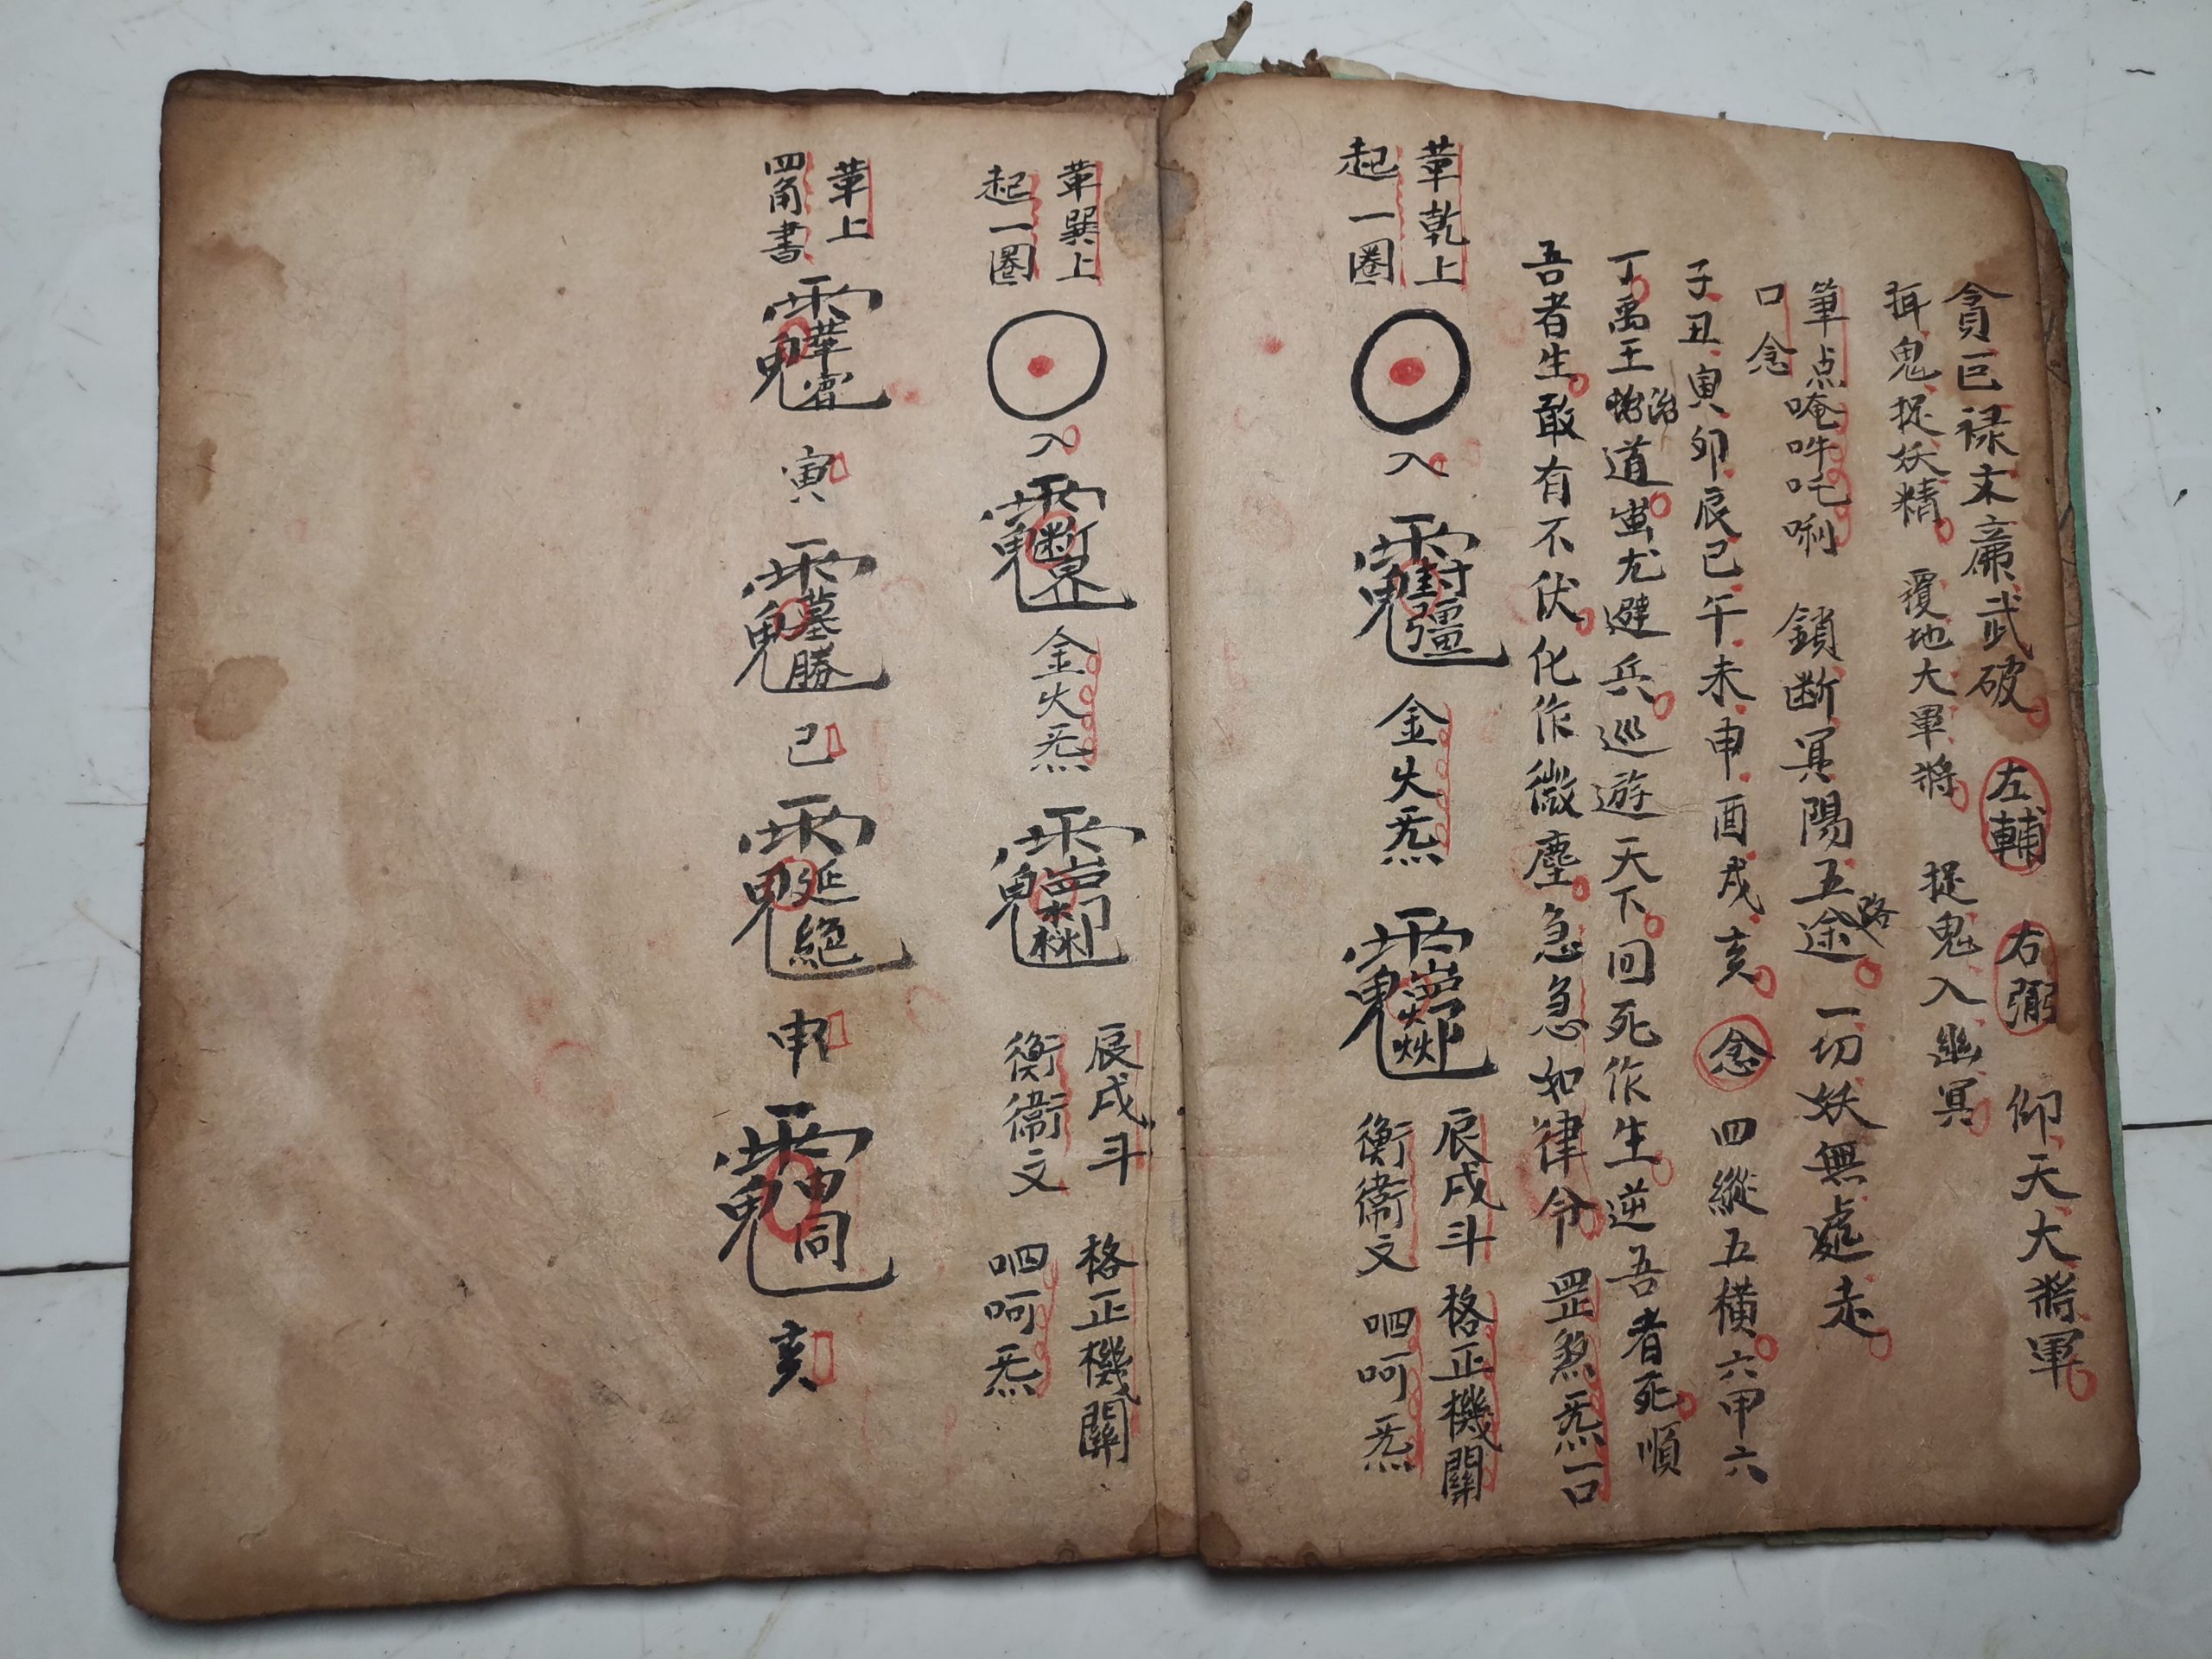 貪巨禄文廉武破 左輔 右弼 仰天大將軍
鬼捉妖精 覆地大軍將 捉鬼入幽冥
筆点唵吽吒唎 鎖断冥陽五途路 一切妖無處走
口念
子丑寅卯辰巳午未申酉戌亥 念 四縱五横六甲六
丁禹王治道蚩尤避兵巡遊天下回死作生逆吾者死順
吾者生敢有不伏化作微塵急急如律令 罡煞炁一口
華乾上
起一圈
入 金火炁
辰戌斗 格正機關
衡衞文 呬呵炁
華巽上
起一圈
入 金火炁
辰戌斗 格正機關
衡衞文 呬呵炁
華上
四角書
寅 巳 申 亥